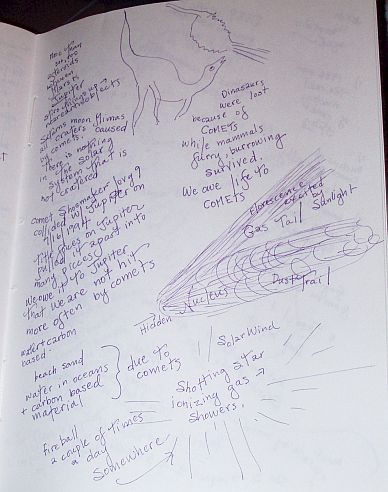 More than
200,000
asteroids
between
Mars +
Jupiter
objects
Saturns moon, Mimas
all craters caused
by comets.
There is nothing
in the Solar
System that is
not cratered
Comet Shoemaker Levy 9
collided w/ Jupiter on
7/16/1994
Tidal forces on Jupiter
pulled it apart into
many pieces
We owe it to Jupiter
that we are not hit
more often by comets
water + carbon
based.
beach sand
water in oceans
+ carbon based
material
due to
comets
fireball
a couple of times
a day
Somewhere
Dinosaurs
were lost
because of
COMETS
while mammals
furry, burrowing
survived.
We owe life to
COMETS
Florescence excited
by
Sunlight
Gas Tail
Hidden Nucleus
Dust Trail
Solar Wind
Shotting star
ionizing gas
showers.